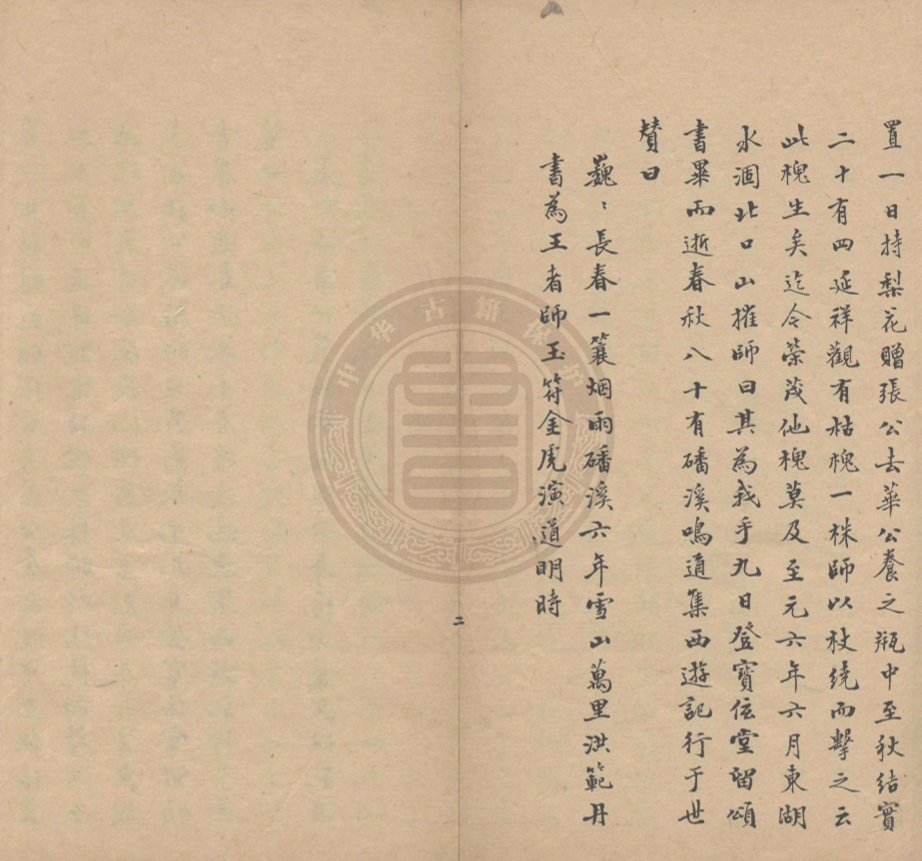 置一日持梨花贈張公去華公養之瓶中至秋結實
二十有四延祥觀有枯槐一株師以杖繞而擊之云
此槐生矣迄今榮茂他槐莫及至元六年六月東湖
水涸北口山摧師曰其為我乎九日登寶玹堂留頌
書畢而逝春秋八十有磻溪鳴道集西遊記行于世
贊曰
巍〻長春一簑烟雨磻溪六年雪山萬里洪範丹
書為王者師玉符金虎演道明時
二
中华古籍保护